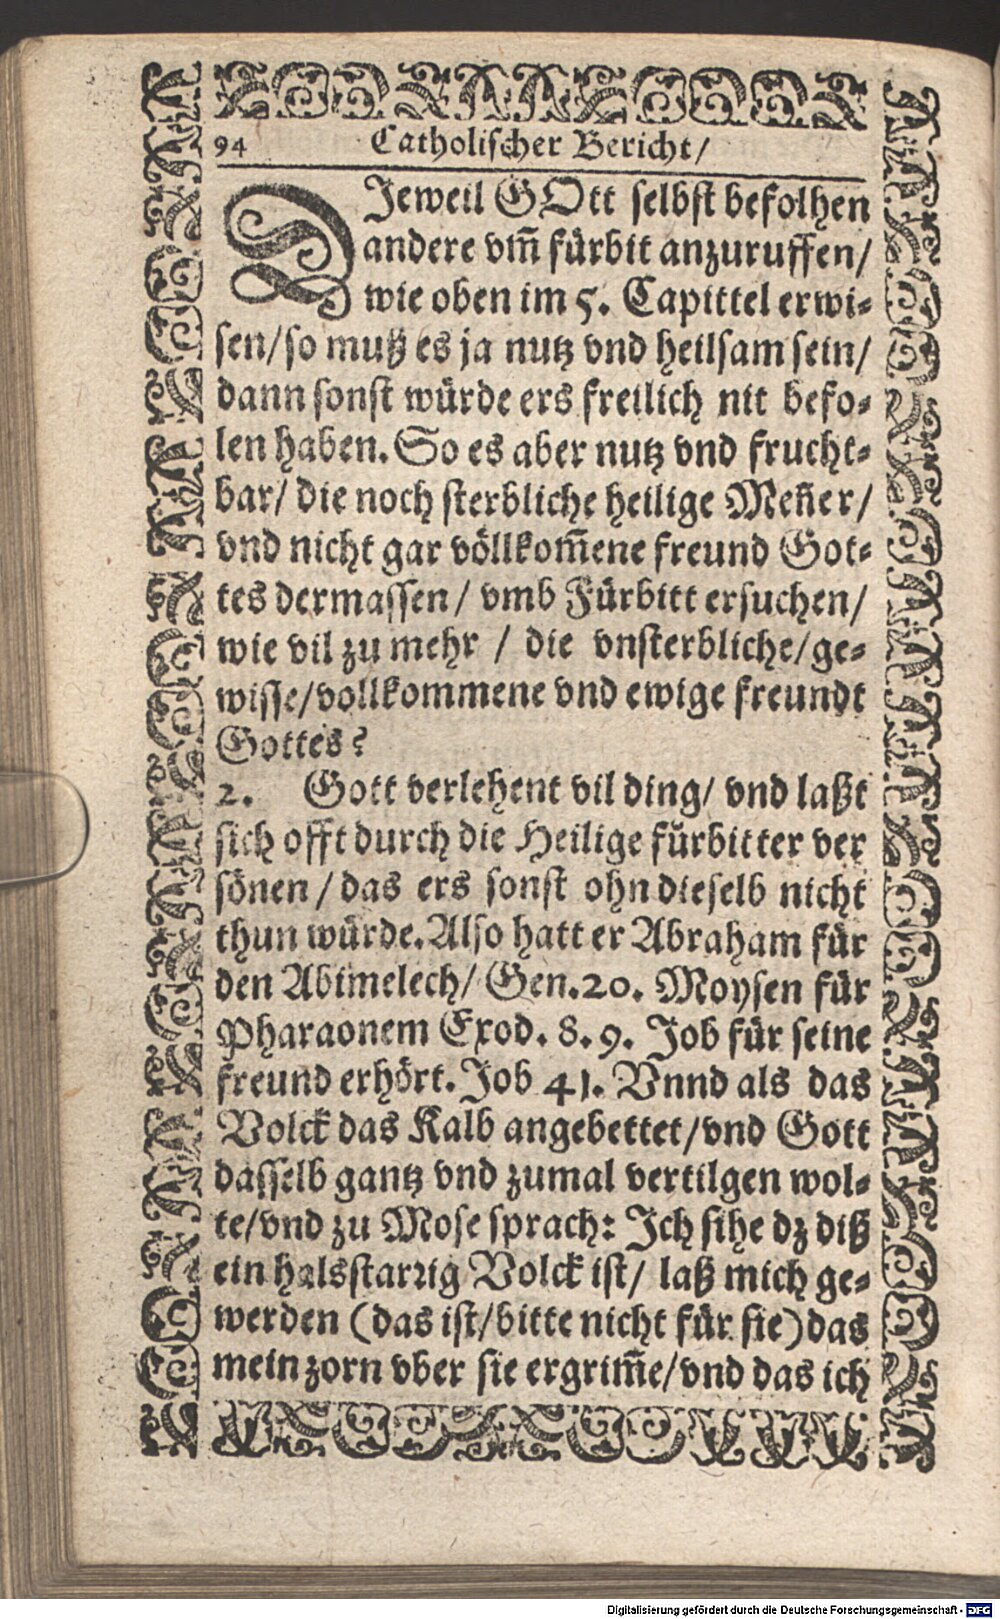 94 Catholischer Bericht/
DJeweil GOtt selbst befolhen
andere vm̃ fürbit anzuruffen/
wie oben im 5. Capittel erwi-
sen/so muß es ja nutz vnd heilsam sein/
dann sonst würde ers freilich nit befo-
len haben. So es aber nutz vnd frucht-
bar/ die noch sterbliche heilige Meñer/
vnd nicht gar völlkom̃ene freund Got-
tes dermassen/ vmb Fürbitt ersuchen/
wie vil zu mehr / die vnsterbliche/ge-
wisse/vollkommene vnd ewige freundt
Gottes?
2. Gott verlehent vil ding/ vnd laßt
sich offt durch die Heilige fürbitter ver
sönen/das ers sonst ohn dieselb nicht
thun würde. Also hatt er Abraham für
den Abimelech/ Gen. 20. Moysen für
Pharaonem Exod. 8. 9. Job für seine
freund erhört. Job 41. Vnnd als das
Volck das Kalb angebettet/vnd Gott
dasselb gantz vnd zumal vertilgen wol-
te/vnd zu Mose sprach: Jch sihe dz diß
ein halsstarrig Volck ist/ laß mich ge-
werden (das ist/bitte nicht für sie) das
mein zorn vber sie ergrim̃e/vnd das ich
Digitalisierung gefördert durch die Deutsche Forschungsgemeinschaft - DFG